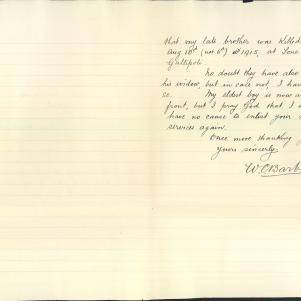 that my late brother was killed
Aug 10th (not 6th) 1915, at Lone
Gallipoli.
No doubt they have also
his widow, but in case not, I have
so. My eldest boy is now a
front, but I pray God that I
have no cause to enlist your
services again.
Once more thanking
Yours sincerely,
W. C. Barb